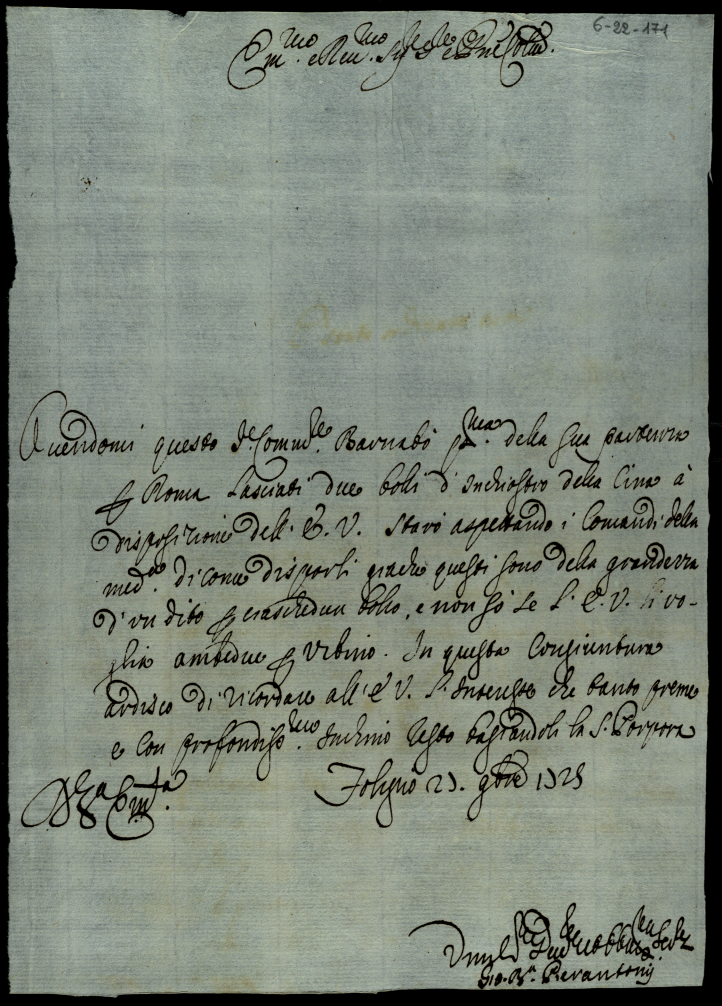 6-22-171
Em.mo e Rev.mo Sig.re Sig.re e P.rne Col.mo
Avendomi questo S.r Comm.re Barnabò p.ma della sua partenza
per Roma lasciati due bolli d'Inchiostro della Cina à
disposizione dell'E. V. starò aspettando i Comandi della
med.a di come disporli giache questi sono della grandezza
d'un dito per ciaschedun bollo, e non sò se l'E. V. li vo-
glia ambedue per Urbino. In questa Congiuntura
ardisco di ricordare all'E V. l'Interesse che tanto preme
e con profondiss.mo Inchino resto bagiandoli la S. Porpora
Foligno 23. 9bre 1725
D V.ra Em.za
Umil.mo Dev.mo et Obblig.mo Ser.re
Gio. B.a Pierantonij